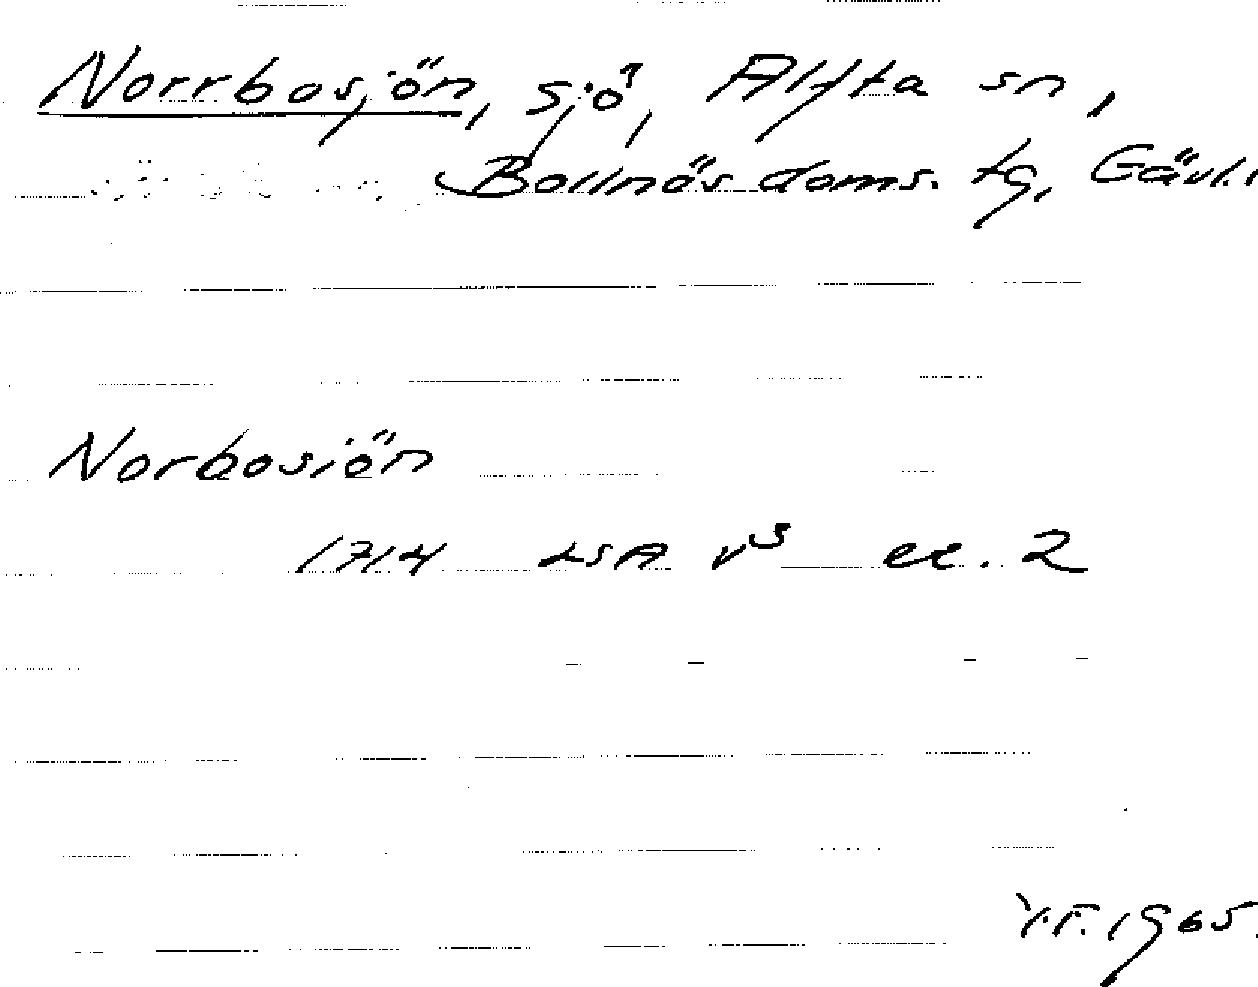 Norrbosjön, sjö, Alfta sn,
Bollnäs doms. tg, Gävl.l
Norbosiön
1714 LSA v³ ex. 2
Y.F. 1965.